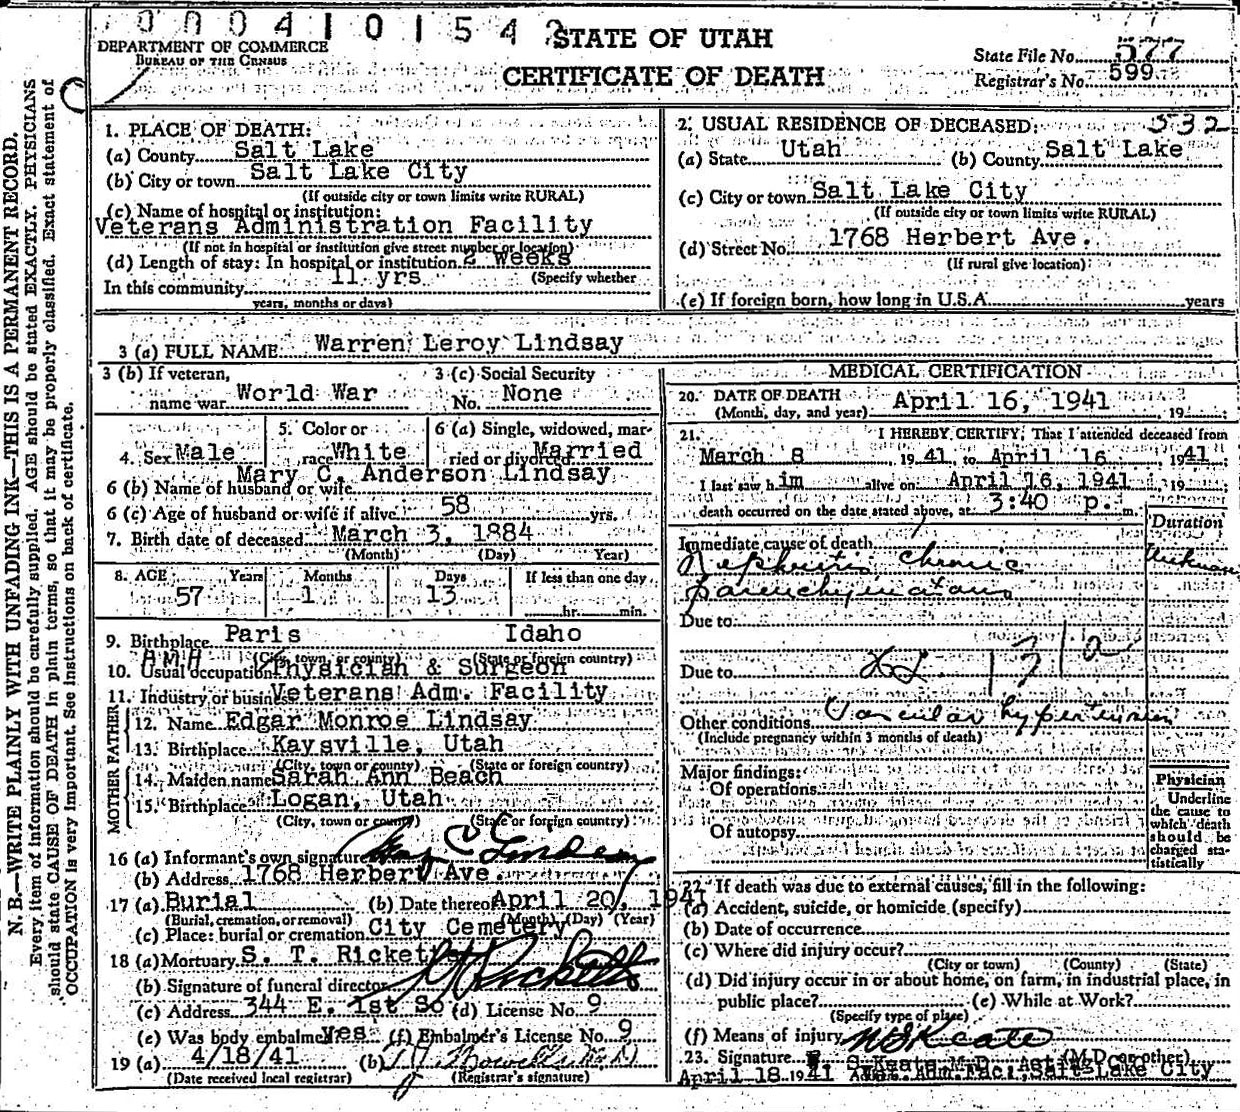 000410154
STATE OF UTAH
DEPARTMENT OF COMMERCE
BUREAU OF THE CENSUS
CERTIFICATE OF DEATH
State File No. 577
Registrar's No. 599
N. B.—WRITE PLAINLY WITH UNFADING INK—THIS IS A PERMANENT RECORD.
Every item of information should be carefully supplied. AGE should be stated EXACTLY. PHYSICIANS
should state CAUSE OF DEATH in plain terms, so that it may be properly classified. Exact statement of
OCCUPATION is very important. See instructions on back of certificate.
1. PLACE OF DEATH:
(a) County Salt Lake
(b) City or town Salt Lake City
(If outside city or town limits write RURAL)
(c) Name of hospital or institution:
Veterans Administration Facility
(If not in hospital or institution give street number or location)
(d) Length of stay: In hospital or institution 2 weeks
(Specify whether
In this community 11 yrs
years, months or days)
2. USUAL RESIDENCE OF DECEASED: 532
(a) State Utah (b) County Salt Lake
(c) City or town Salt Lake City
(If outside city or town limits write RURAL)
(d) Street No. 1768 Herbert Ave.
(If rural give location)
(e) If foreign born, how long in U.S.A. years
3 (a) FULL NAME Warren Leroy Lindsay
3 (b) If veteran, name war World War
3 (c) Social Security No. None
4. Sex Male
5. Color or race White
6 (a) Single, widowed, married or divorced Married
Mary C. Anderson Lindsay
6 (b) Name of husband or wife
6 (c) Age of husband or wife if alive 58 yrs.
7. Birth date of deceased March 3, 1884
(Month) (Day) Year)
8. AGE Years Months Days If less than one day
57 1 13 hr. min.
9. Birthplace Paris Idaho
(City, town or county) (State or foreign country)
10. Usual occupation Physician & Surgeon
11. Industry or business Veterans Adm. Facility
FATHER
12. Name Edgar Monroe Lindsay
13. Birthplace Kaysville, Utah
(City, town or county) (State or foreign country)
MOTHER
14. Maiden name Sarah Ann Beach
15. Birthplace Logan, Utah
(City, town or county) (State or foreign country)
16 (a) Informant's own signature Mary C Lindsay
(b) Address 1768 Herbert Ave.
17 (a) Burial (b) Date thereof April 20, 1941
(Burial, cremation, or removal) (Month) (Day) (Year)
(c) Place: burial or cremation City Cemetery
18 (a) Mortuary S. T. Ricketts
(b) Signature of funeral director S T Ricketts
(c) Address 344 E. 1st So (d) License No. 9
(e) Was body embalmed yes (f) Embalmer's License No. 9
19 (a) 4/18/41 (b)
(Date received local registrar) (Registrar's signature)
MEDICAL CERTIFICATION
20. DATE OF DEATH April 16, 1941, 19
(Month, day, and year)
21. I HEREBY CERTIFY, That I attended deceased from
March 8 1941, to April 16 1941
I last saw him alive on April 16, 1941, 19
death occurred on the date stated above, at 3:40 p. m.
Duration
Immediate cause of death
Nephritis, chronic
parenchymatous
Unknown
Due to
Due to
131a
Other conditions Vascular hypertension
(Include pregnancy within 3 months of death)
Major findings:
Of operations
Of autopsy
Physician
Underline the cause to which death should be charged statistically
22. If death was due to external causes, fill in the following:
(a) Accident, suicide, or homicide (specify)
(b) Date of occurrence
(c) Where did injury occur?
(City or town) (County) (State)
(d) Did injury occur in or about home, on farm, in industrial place, in
public place? (e) While at Work?
(Specify type of place)
(f) Means of injury
23. Signature W S Keate
S. Keate M.D. (M.D. or other)
April 18 1941 Vet. Adm. Fac., Salt Lake City